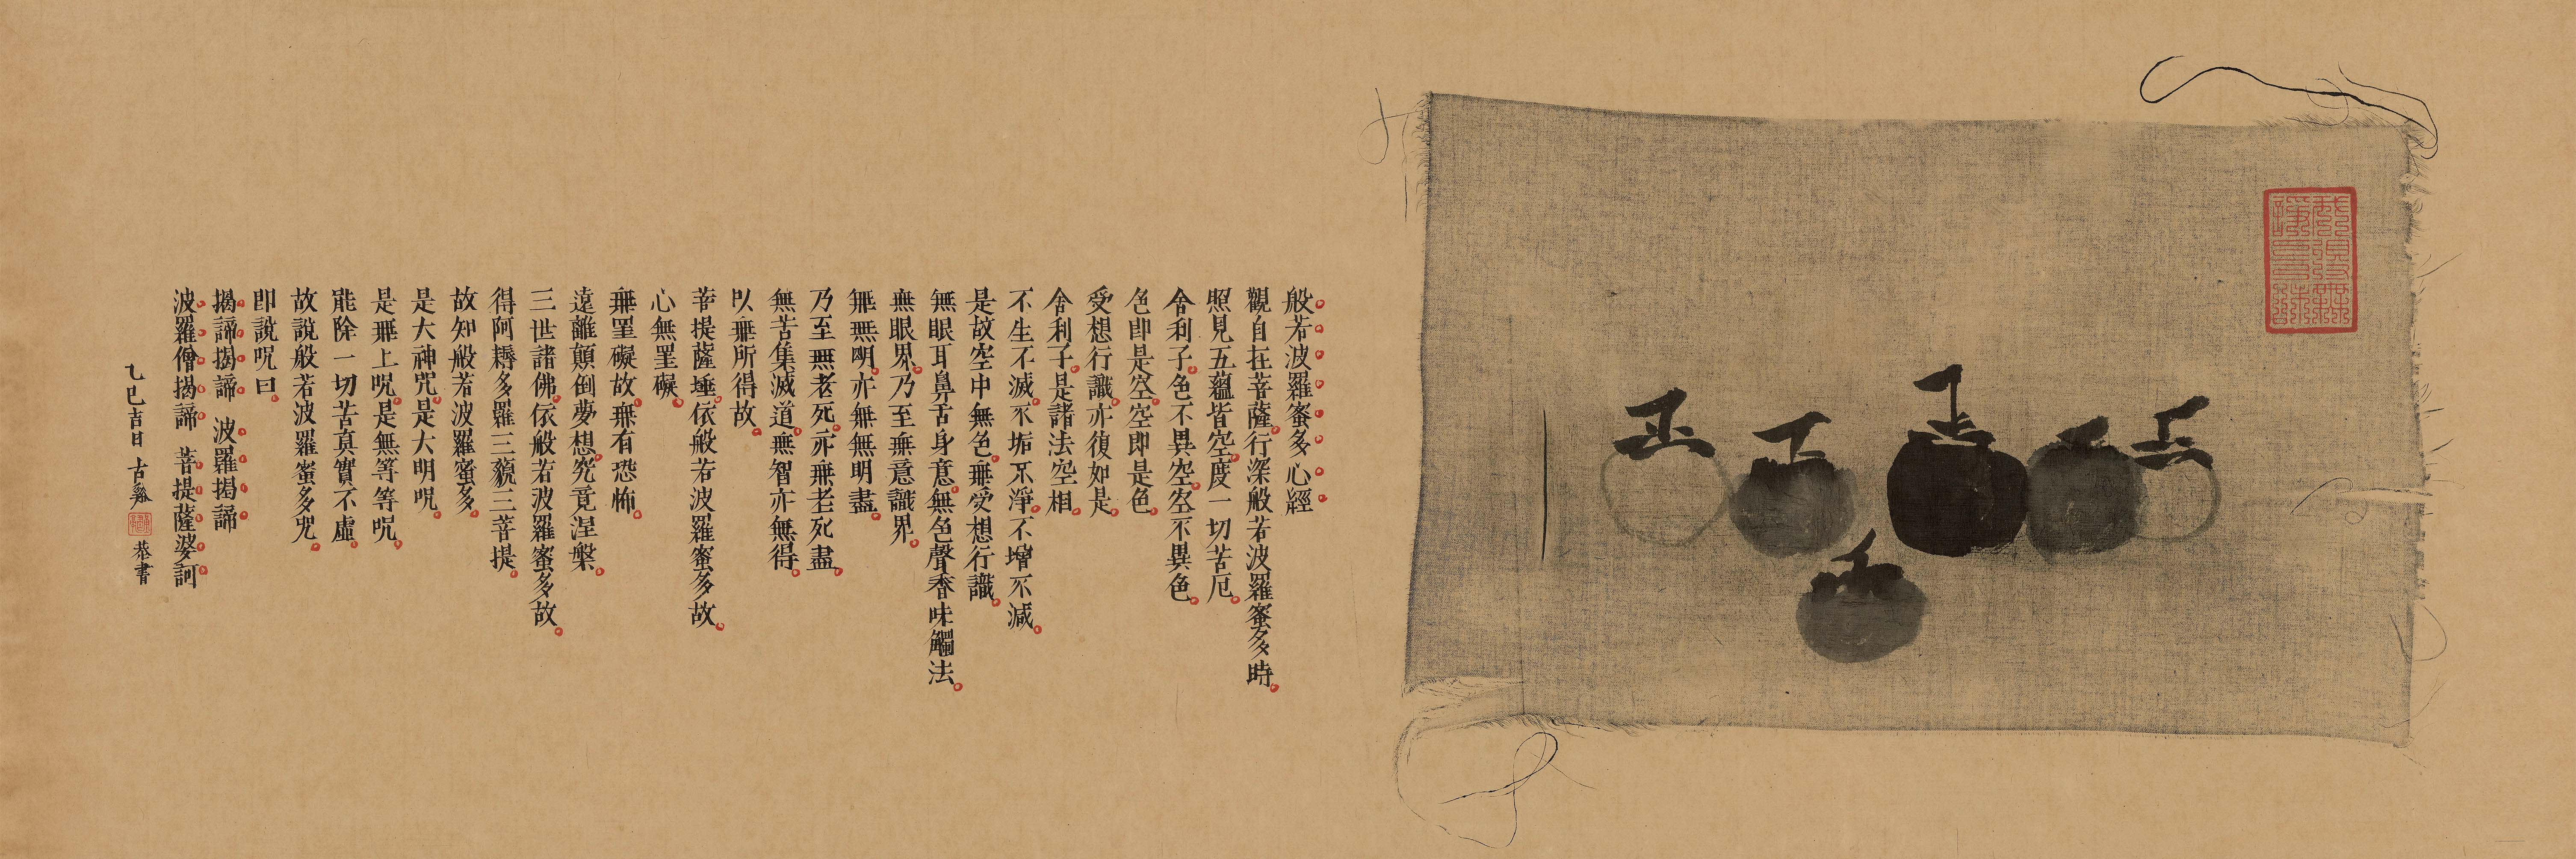 般若波羅蜜多心經
觀自在菩薩行深般若波羅蜜多時
照見五蘊皆空度一切苦厄
舍利子色不異空空不異色
色即是空空即是色
受想行識亦復如是
舍利子是諸法空相
不生不滅不垢不淨不增不減
是故空中無色無受想行識
無眼耳鼻舌身意無色聲香味觸法
無眼界乃至無意識界
無無明亦無無明盡
乃至無老死亦無老死盡
無苦集滅道無智亦無得
以無所得故
菩提薩埵依般若波羅蜜多故
心無罣礙
無罣礙故無有恐怖
遠離顛倒夢想究竟涅槃
三世諸佛依般若波羅蜜多故
得阿耨多羅三藐三菩提
故知般若波羅蜜多
是大神咒是大明咒
是無上咒是無等等咒
能除一切苦真實不虛
故說般若波羅蜜多咒
即說咒曰
揭諦揭諦 波羅揭諦
波羅僧揭諦 菩提薩婆訶
乙巳吉日 古谿 恭書